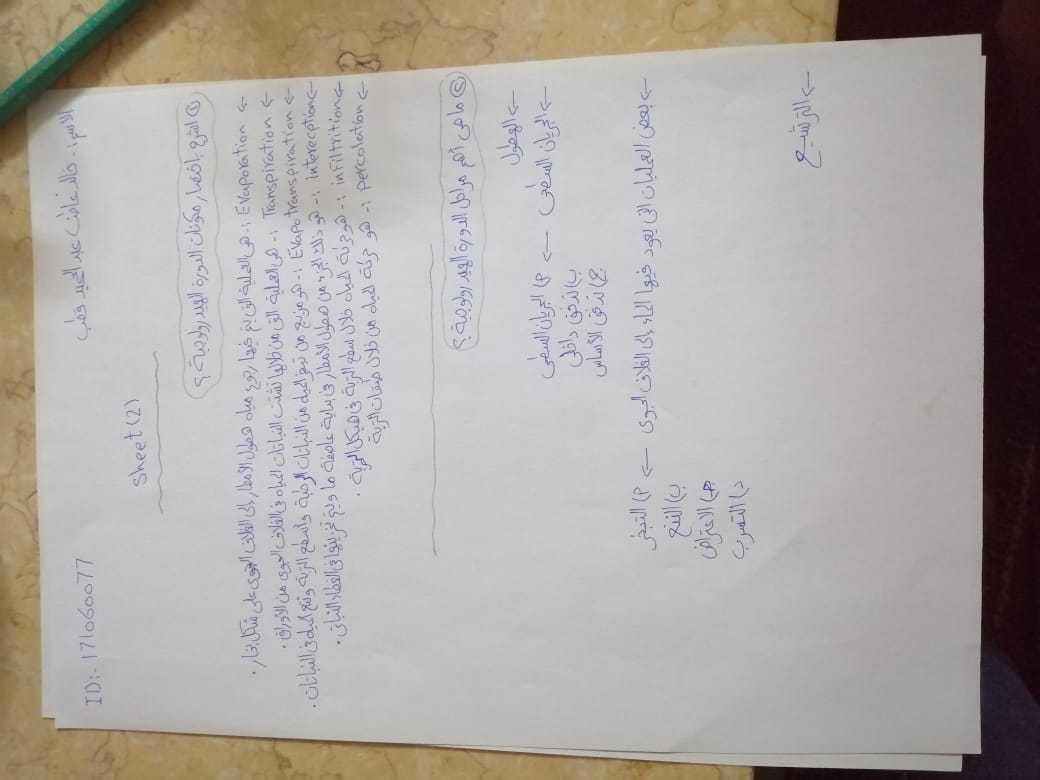 الاسم :- خالد عاطف عبد الحميد قطب
ID:- 171060077
Sheet (2)
① اشرح باختصار مكونات الدورة الهيدرولوجية ؟
← Evaporation :- هى العملية التى يتم فيها رجوع مياه هطول الأمطار إلى الغلاف الجوى على شكل بخار .
← Transpiration :- هى العملية التى من خلالها تشتت النباتات المياه فى الغلاف الجوى من الأوراق .
← Evapotranspiration :- هو مزيج من تبخر المياه من النباتات الرطبة وأسطح التربة ونتح المياه فى النباتات .
← interecption :- هو ذلك الجزء من هطول الأمطار فى بداية عاصفة ما ويتم تخزينها فى الغطاء النباتى .
← infiltrition :- هو حركة المياه خلال سطح التربة فى هيكل التربة .
← percolation :- هو حركة المياه من خلال طبقات التربة
② ما هى أهم مراحل الدورة الهيدرولوجية ؟
← الهطول
← الجريان السطحى ← أ) الجريان السطى
ب) تدفق داخلى
ج) تدفق الأساس
← بعض العمليات التى يعود فيها الماء إلى الغلاف الجوى ← أ) التبخر
ب) النتح
جـ) الاعتراض
د) التسرب
← الترشيح